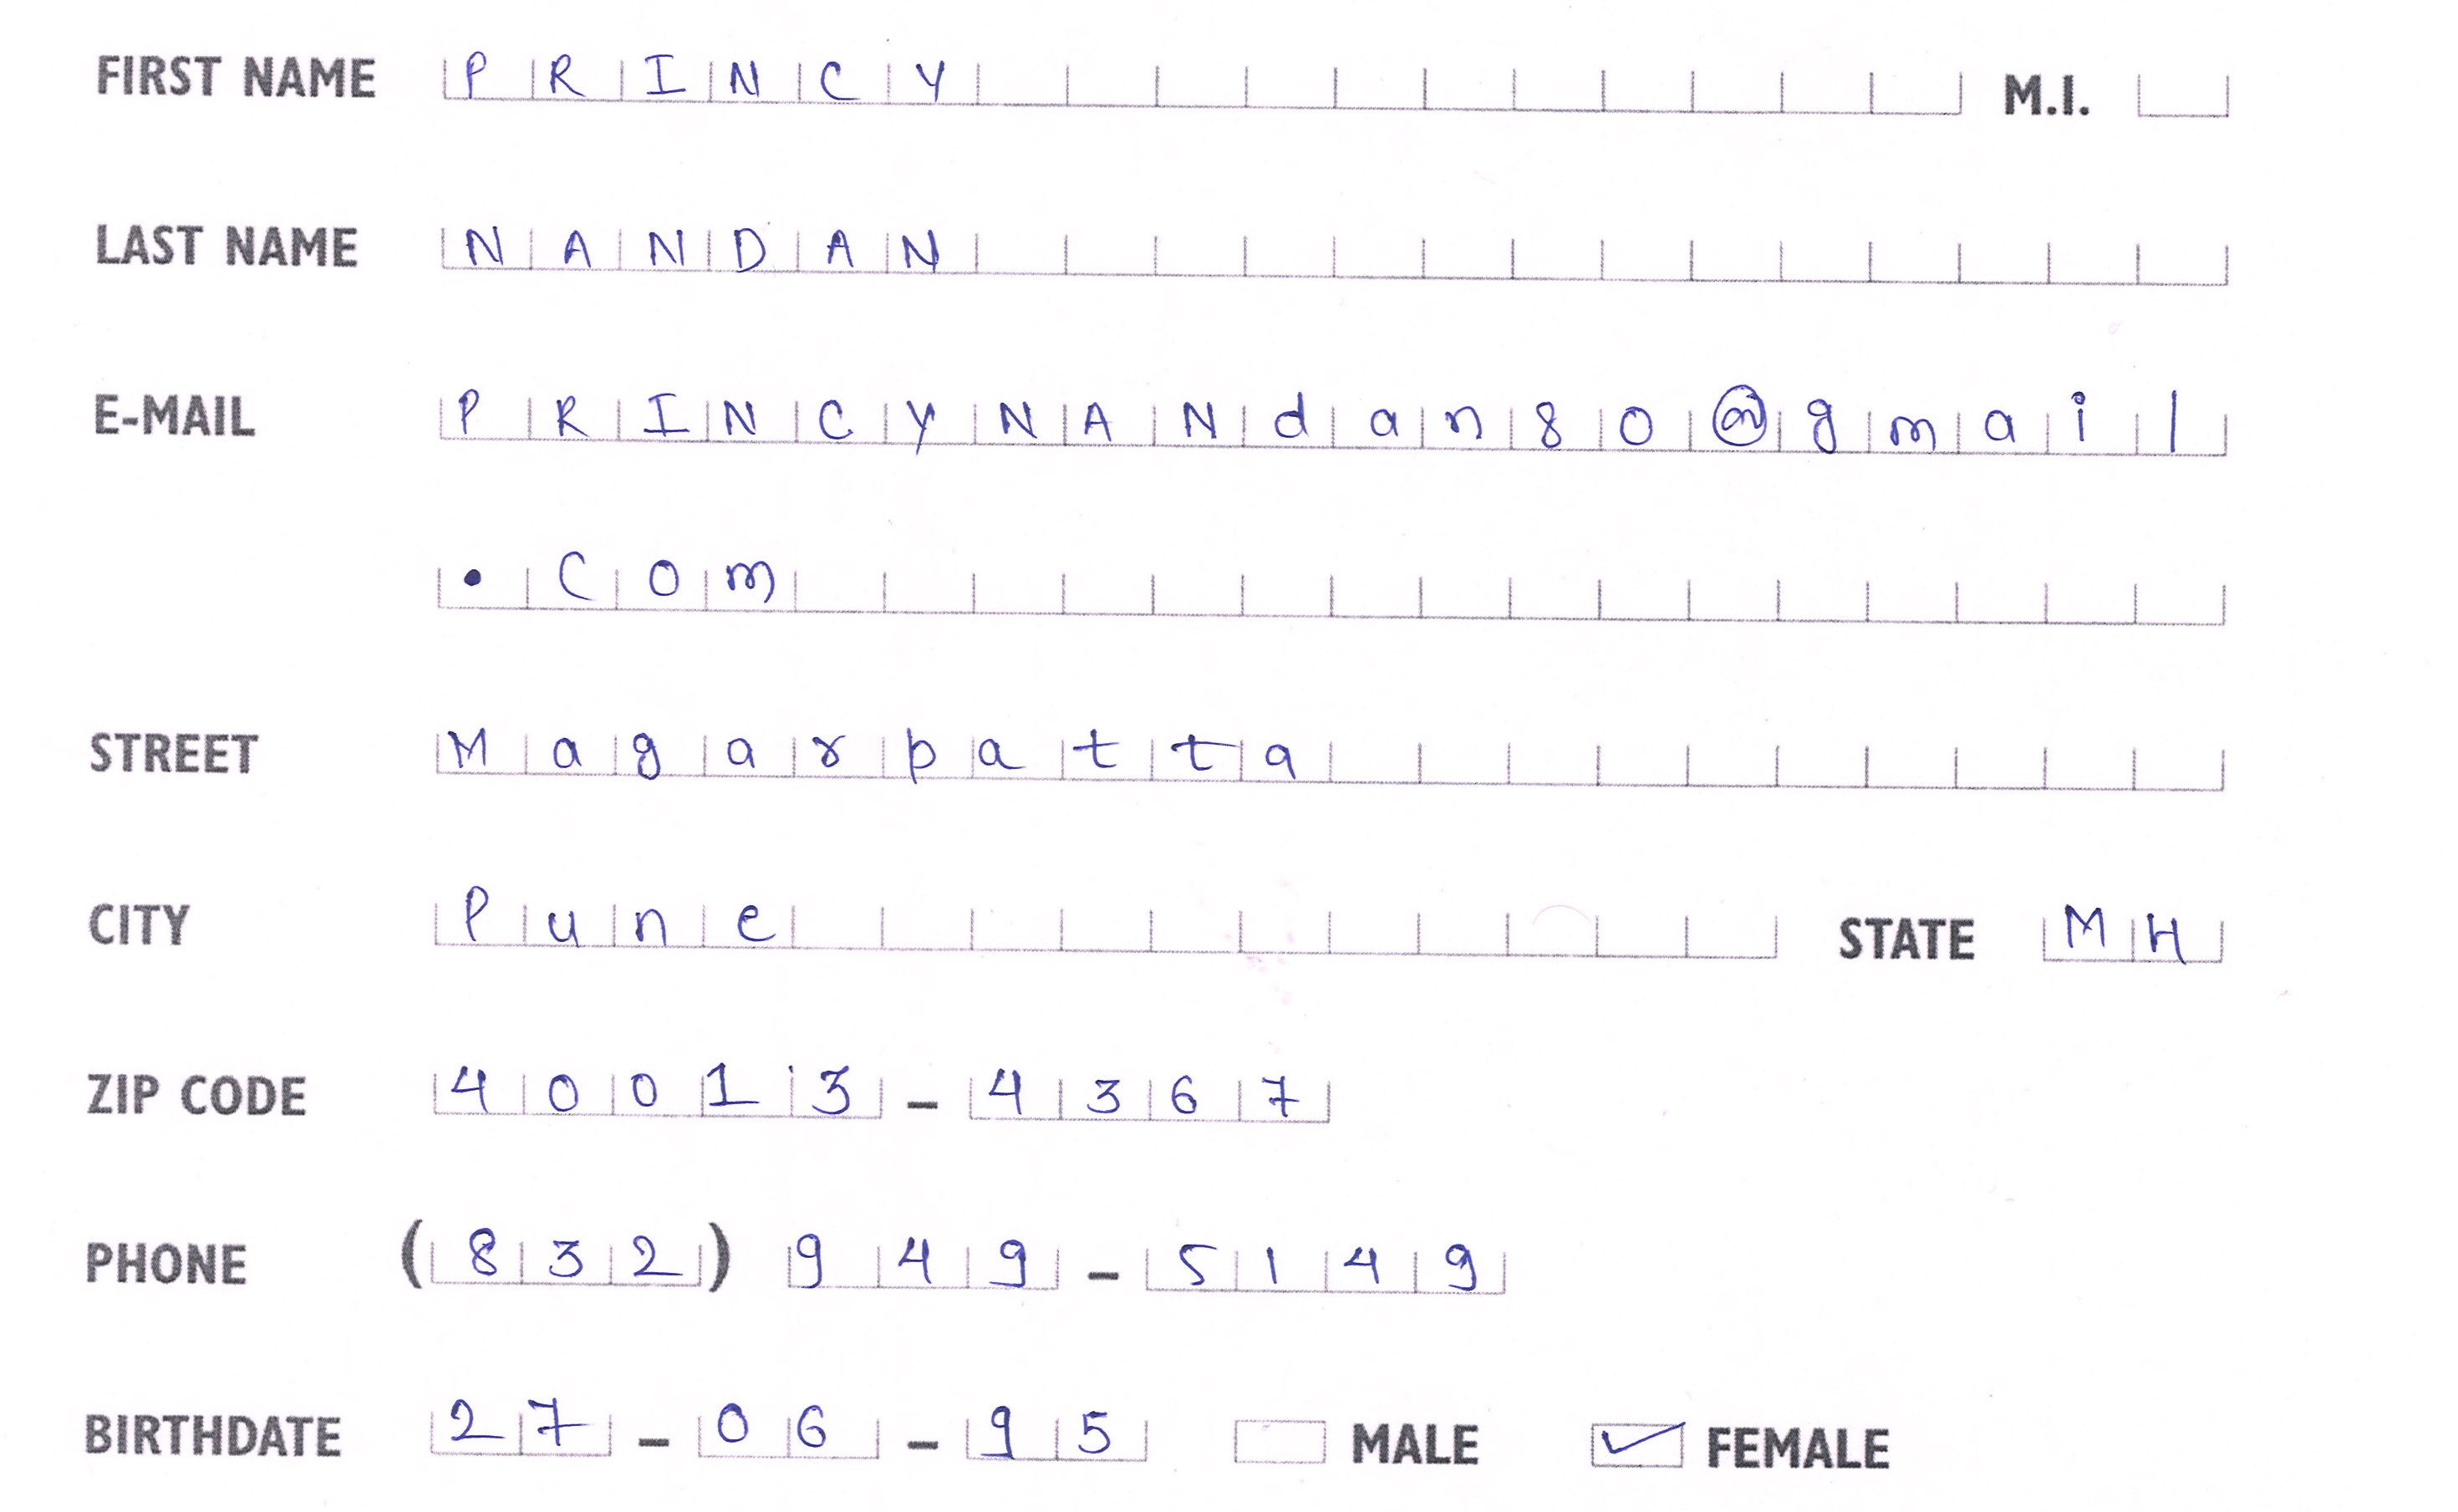 FIRST NAME PRINCY M.I.
LAST NAME NANDAN
E-MAIL PRINCYNANdan80@gmail
.Com
STREET Magarpatta
CITY Pune STATE MH
ZIP CODE 40013-4367
PHONE (832) 949-5149
BIRTHDATE 27-06-95 MALE FEMALE